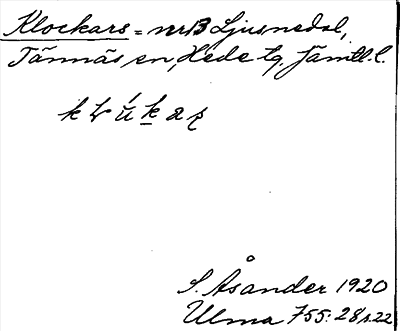 Klockars = nr 13 Ljusnedal,
Tännäs sn, Hede tg. Jämtl. l.
S. Åsander 1920
Ulma 755:28 s. 22